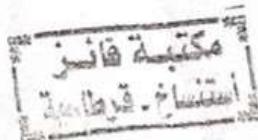 مكتبة فائز
استنساخ - قرطاسية